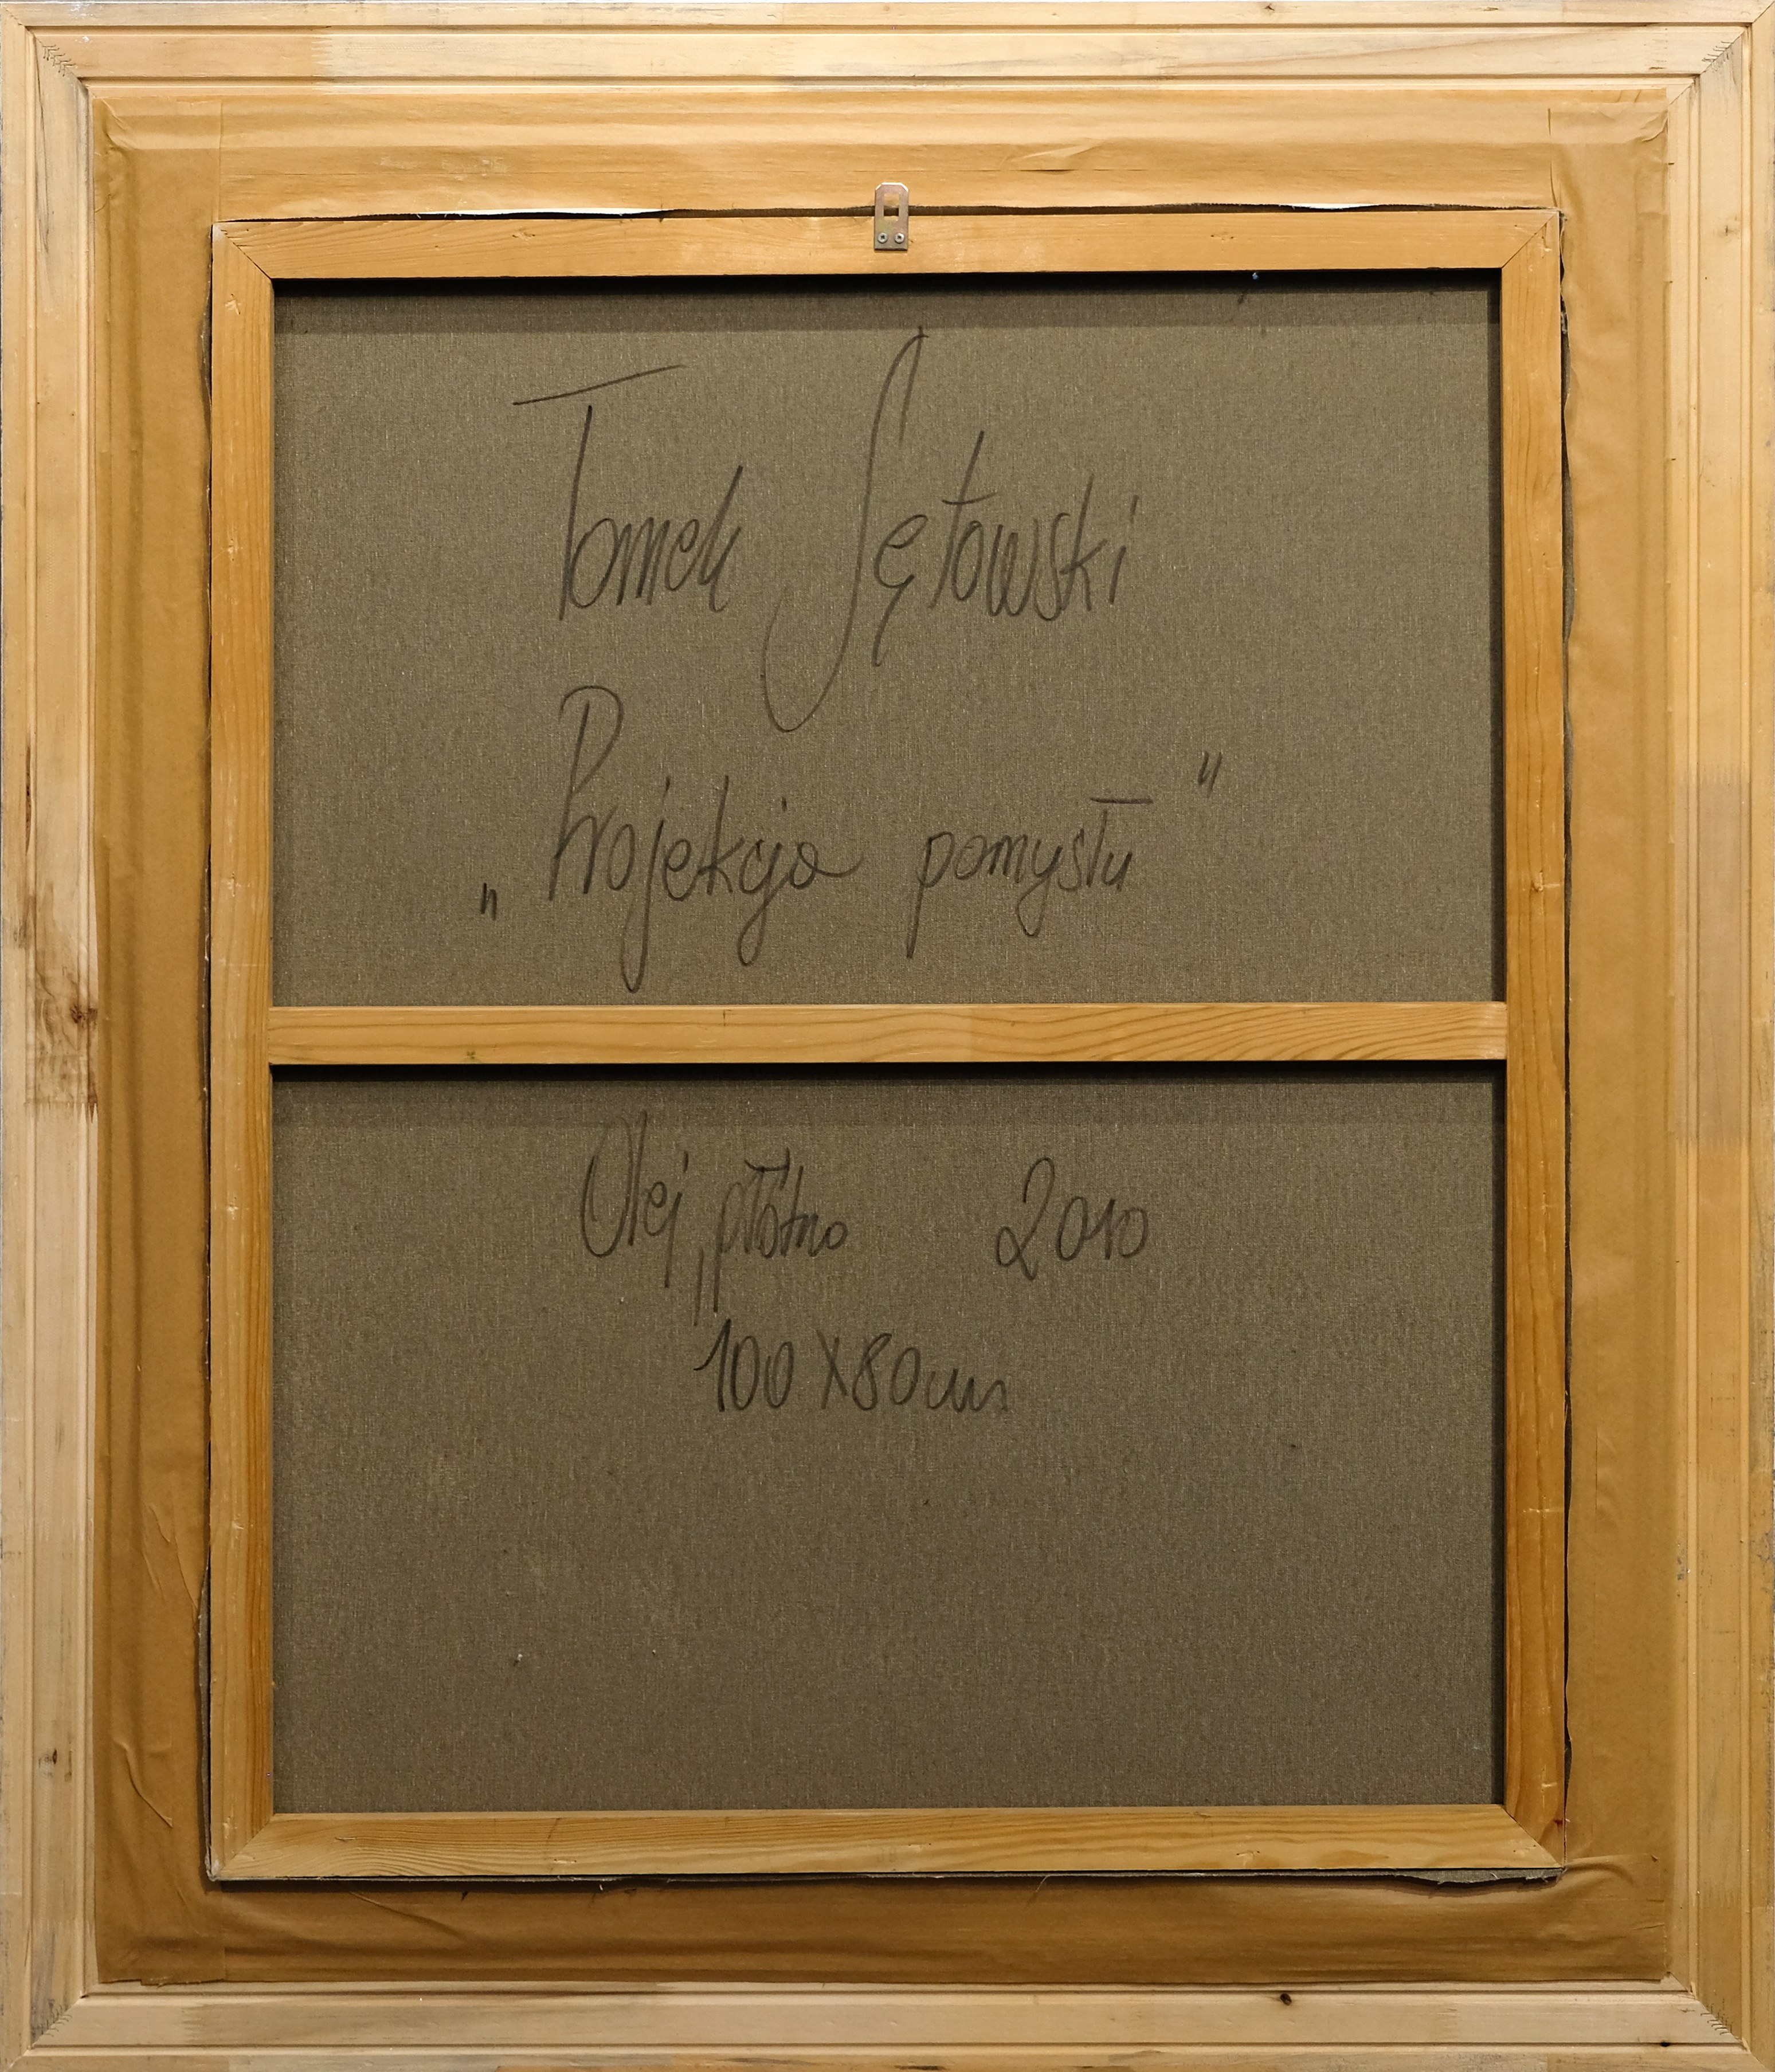 Tomek Sętowski
„Projekcja pomysłu"
Olej, płótno 2010
100 X 80 cm